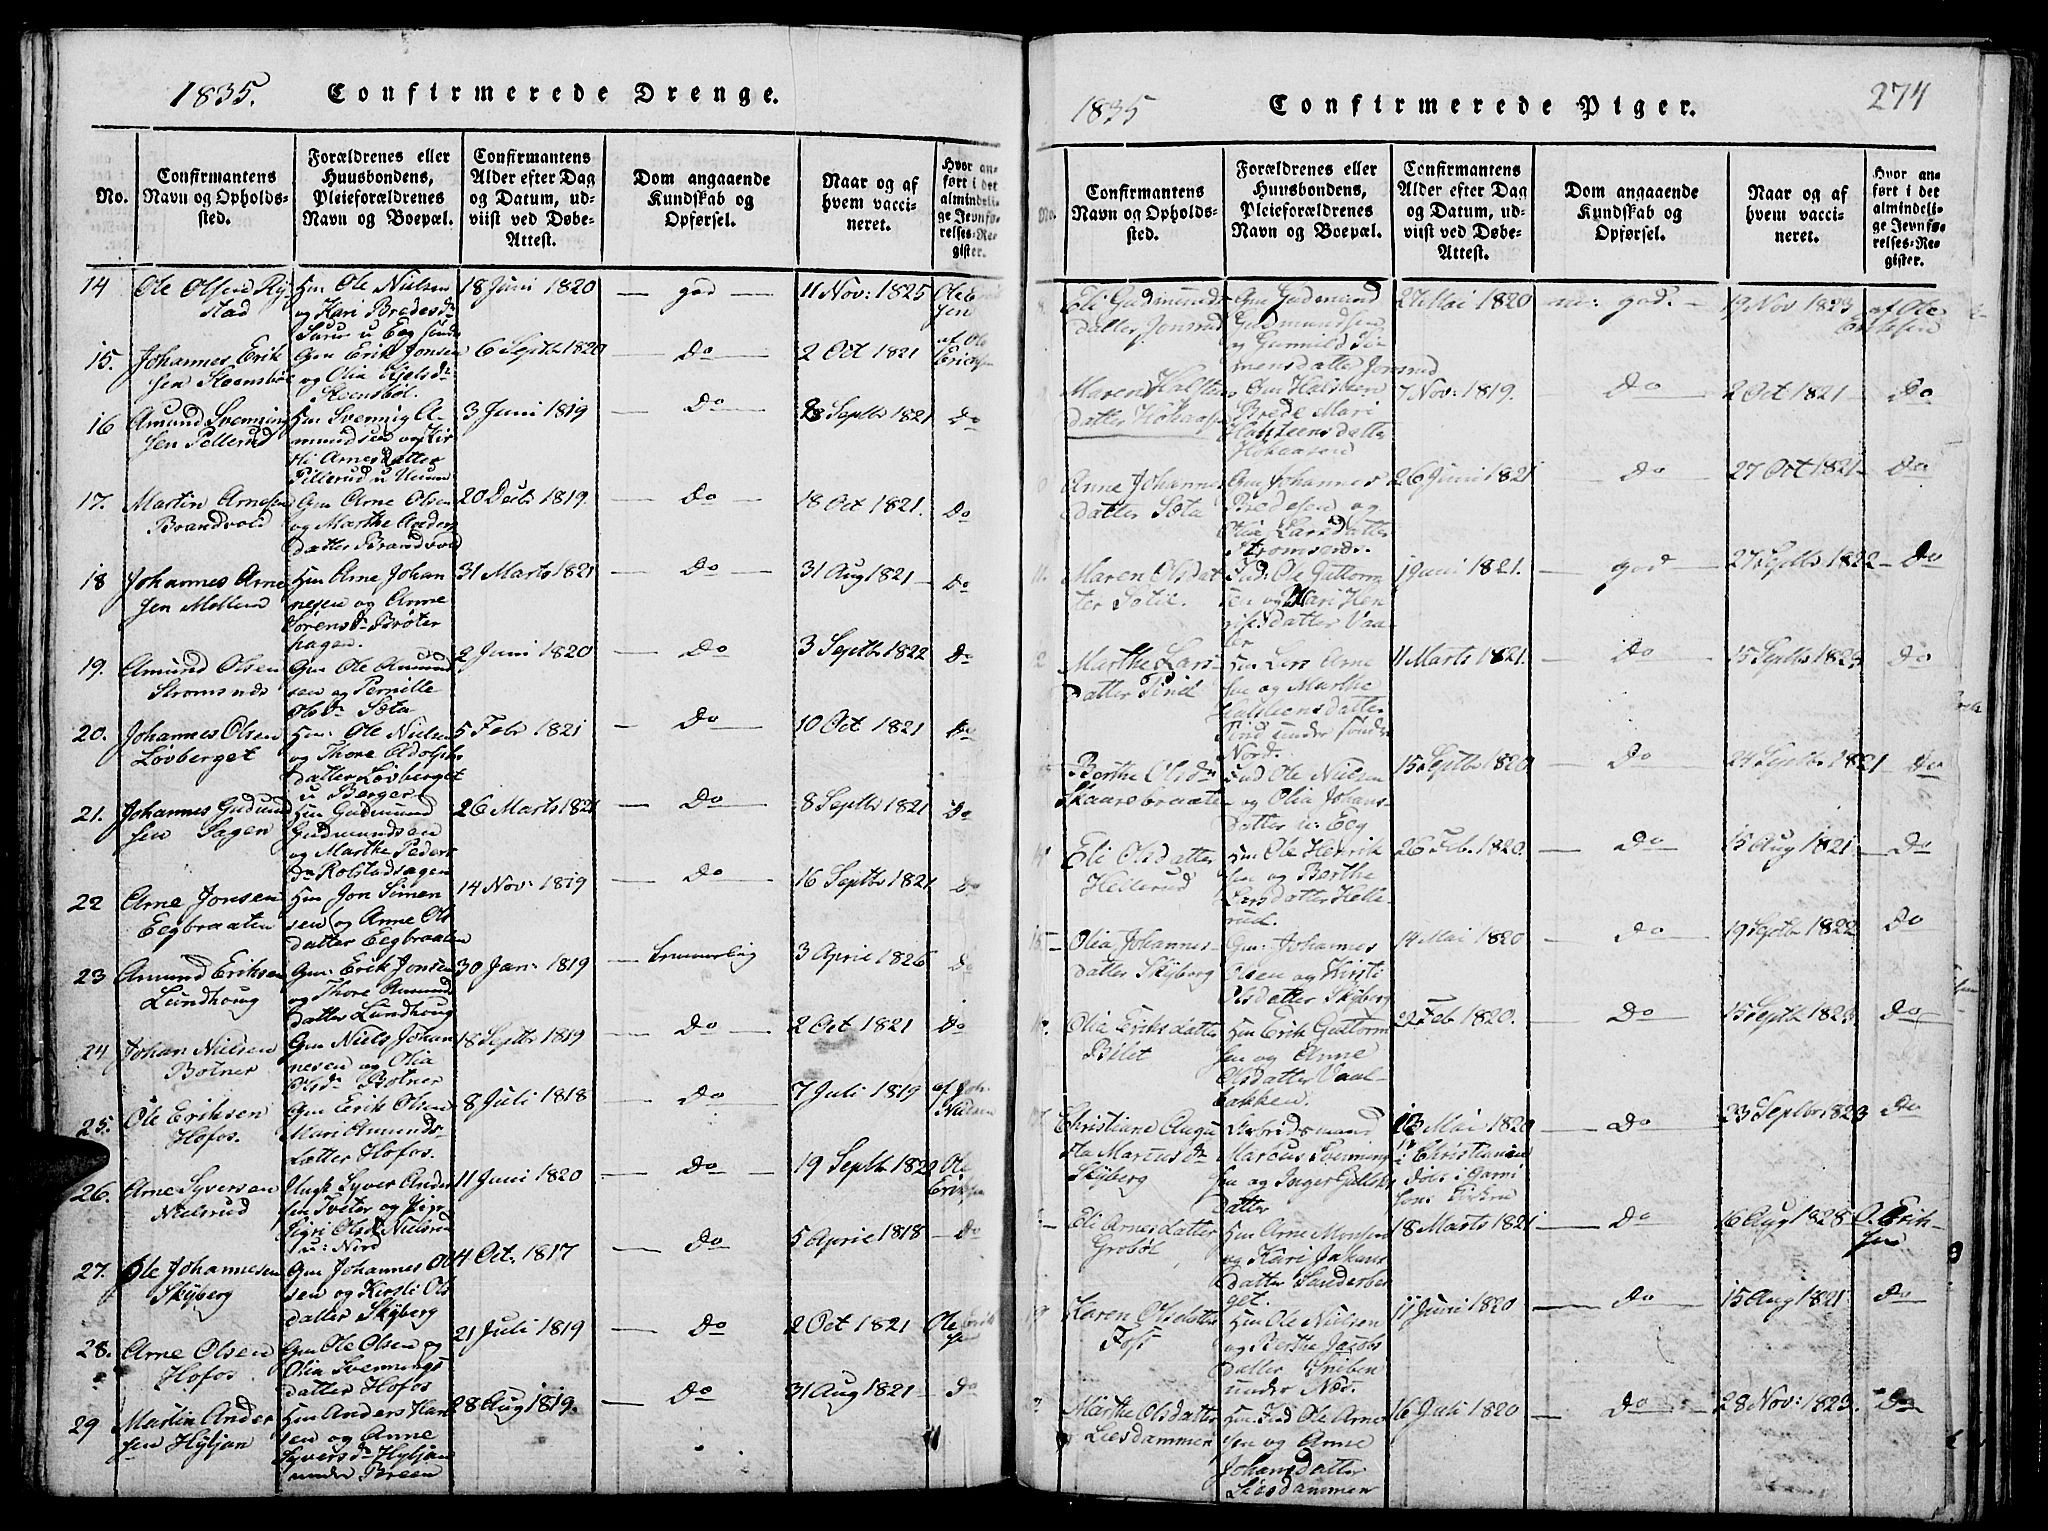 1835. Confirmerede Drenge.
No.
Confirmantens
Navn og Opholds-
sted.
Forældrenes eller
Huusbondens,
Pleieforældrenes
Navn og Boepæl.
Confirmantens
Alder efter Dag
og Datum, ud-
viist ved Døbe-
Attest.
Dom angaaende
Kundskab og
Opførsel.
Naar og af
hvem vacci-
neret.
Hvor an-
ført i det
almindeli-
ge Jevnfø-
relses-Re-
gister.
14
Ole Olsen Ry-
stad
Hm Ole Nielsen
og Kari Bredesdr
18 Juni 1820
god
11 Nov: 1825
15.
Johannes Erik
sen Steensbøl
Gm Erik Jonsen
og Olia Kjelsdr
Steensbøl.
6 Septb 1820
Do
2 Oct 1821
af Ole
Ericksen
16
Amund Svenning
sen Pellerud
Hm Svennig A
mundsen og Kir
sti Arnesdatter
3 Juni 1819
Do
28 Septb 1821
Do
17.
Martin Arnesen
Brandvold
Gm Arne Olsen
og Marthe Anders
datter Brandvold
20 Decb 1819.
Do
18 Oct 1821.
Do
18
Johannes Arne
sen Mellem
Hm Arne Johan
nesen og Anne
Sørensdr Brøter
hagen.
31 Marts 1821
Do
31 Aug 1821
Do
19.
Amund Olsen
Stromsnds
Gm Ole Amund
sen og Pernille
Olsdr Sota
2 Juni 1820
Do
3 Septb 1822
Do
20.
Johannes Olsen
Løvberget
Hm: Ole Nielsen
og Thore Adolphs
datter Løvberget
u Berger
5 Febr 1821
Do
10 Oct 1821
Do
21.
Johannes Gudmund
sen Sagen
Hm Gudmund
Gudmundsen
og Marthe Peders
dr Rolstadsagen
26 Marts 1821
Do
8 Septb 1821
Do
22
Arne Jonsen
Eegbraaten
Hm Jon Simen
sen og Anne Ols
datter Eegbraaten
14 Nov: 1819
Do
16 Septb 1821
Do
23
Amund Eriksen
Lundhoug
Gm: Erik Jonsen
og Thore Amunds
datter Lundhoug
30 Jan: 1819
3 April 1826
Do
24
Johan Nielsen
Botner
Gm Niels Johan
nesen og Olia
Olsdr Botner
18 Septbr 1819
Do
2 Oct 1821
Do
25.
Ole Eriksen
Hofos.
Gm Erik Olsen
Mari Amunds-
datter Hofos.
8 Juli 1818
Do
7 Juli 1819
af Joh.
Nielsen
26.
Arne Syversen
Nielsrud
Ungk Syver Ander
sen Tveter og Pige
Sigri Olsdr Nielsrud
u: Nord
11 Juni 1820
Do
19 Septb 1822
Ole
Eriksen
27.
Ole Johannesen
Skyberg
Gm Johannes Ol
sen og Kirsti Ols
datter Skyberg
4 Oct. 1817
Do
5 April 1818
Do
28.
Arne Olsen
Hofos
Gm Ole Olsen og
Olia Svennings
datter Hofos
21 Juli 1819
Do
2 Oct 1821
Ole
29
Martin Ander
sen Hyljan
Hm Anders Han
sen og Anne
Syversdr Hyljan
under Breen
28 Aug 1819.
Do
31 Aug 1821
Do
1835 Confirmerede Piger. 274
No.
Confirmantens
Navn og Opholds-
sted.
Forældrenes eller
Huusbondens,
Pleieforældrenes
Navn og Boepæl.
Confirmantens
Alder efter Dag
og Datum, ud-
viist ved Døbe-
Attest.
Dom angaaende
Kundskab og
Opførsel.
Naar og af
hvem vacci-
neret.
Hvor an-
ført i det
almindeli-
ge Jevnfø-
relses-Re-
gister.
Eli Gudmunds
datter Jonsrud
Gm Gudmund
Gudmundsen
og Gunnild Si
mensdatter Jonsrud
27 Mai 1820
m: god.
19 Nov 1823
af Ole
Maren Halsten
datter Hokaasen
Gm Halsteen
Brede Mari
Halsteensdatter
Hokaasen
7 Nov: 1819.
Do
2 Oct 1821
Do
Anne Johannes
datter Sota
Gm Johannes
Bredesen og
Olia Larsdatter
26 Juni 1821
Do
27 Oct 1821
Do
11.
Maren Olsdat
ter Sotie.
Ind: Ole Guttorm
sen og Mari Hen
riksdatter Vaa-
ler
1 Juni 1821.
god
27 Septb 1822
Do
Marthe Lars-
datter Tind
Hm Lars Arne
sen og Marthe
Halsteensdatter
Tind under sondre
Nord.
11 Marts 1821.
Do
Do
Berthe Olsdr
Skaarebraaten
Ind Ole Nielsen
og Olia Johans-
datter u: Eeg
15 Septb 1820
Do
24 Septb 1821
Do
Eli Olsdatter
Hellerud
Hm Ole Henrik
sen og Berthe
Larsdatter Helle-
rud.
26 Feb. 1820.
Do
15 Aug 1821
Do
15
Olia Johannes-
datter Skyberg
Gm: Johannes
Olsen og Kirsti
Olsdatter Skyberg
14 Mai 1820
Do
19 Septb 1822
Do
Olia Eriksdatter
Bilet
Hm Erik Guttorm
sen og Anne
Olsdatter Vaal-
bakken.
22 Feb 1820.
Do
15 Septb 1823
Do
Christiane Augu
sta Marcusdr
Skyberg
Arbeidsmand
Marcus Svenning
sen og Inger Gulls
datter
Mai 1820
i Christiania
døbt i Garni
sons Kirken
Do
23 Septbr 1823
Do
Eli Arnesdatter
Grobøl
Hm Arne Monsen
og Kari Johans
datter Sanderber
get.
18 Marts 1821
Do
16 Aug 1825
O. Erik-
sen
Karen Olsdatter
Foss
Hm Ole Nielsen
og Berthe Jacobs
datter
under Nor.
11 Juni 1820
Do
15 Aug 1821
Do
Marthe Olsdatter
Liesdammen
Hm Ind Ole Arne
sen og Anne
Johansdatter
Liesdammen
16 Juli 1820
Do
28 Nov: 1823.
Do